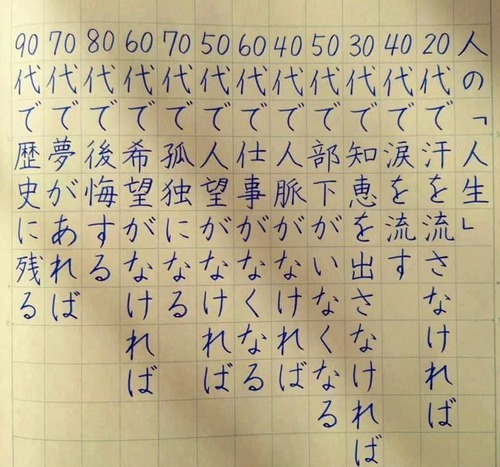 人の「人生」
20代で汗を流さなければ
40代で涙を流す
30代で知恵を出さなければ
50代で部下がいなくなる
40代で人脈がなければ
60代で仕事がなくなる
50代で人望がなければ
70代で孤独になる
60代で希望がなければ
80代で後悔する
70代で夢があれば
90代で歴史に残る